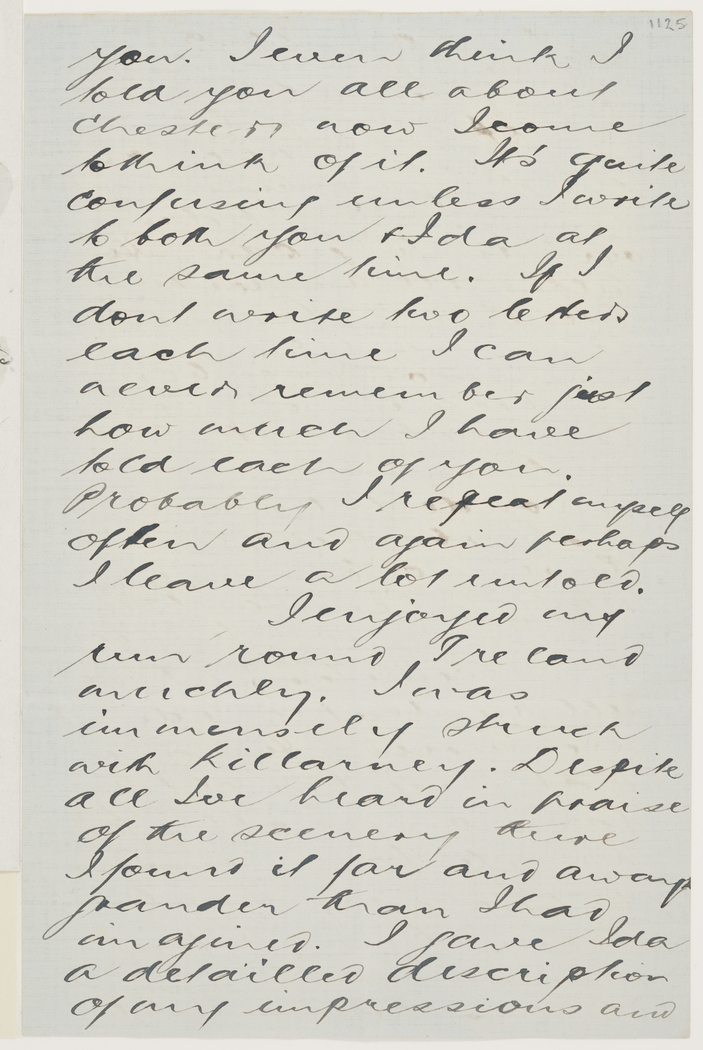 1125
you. I even think I
told you all about
Chester now I come
to think of it. It's quite
confusing unless I write
to both you & Ida at
the same time. If I
dont write two letters
each time I can
never remember just
how much I have
told each of you.
Probably I repeat myself
often and again perhaps
I leave a lot untold.
I enjoyed my
run round Ireland
muchly. I was
immensely struck
with Killarney. Despite
all I've heard in praise
of the scenery there
I found it far and away
grander than I had
imagined. I gave Ida
a detailled description
of my impressions and